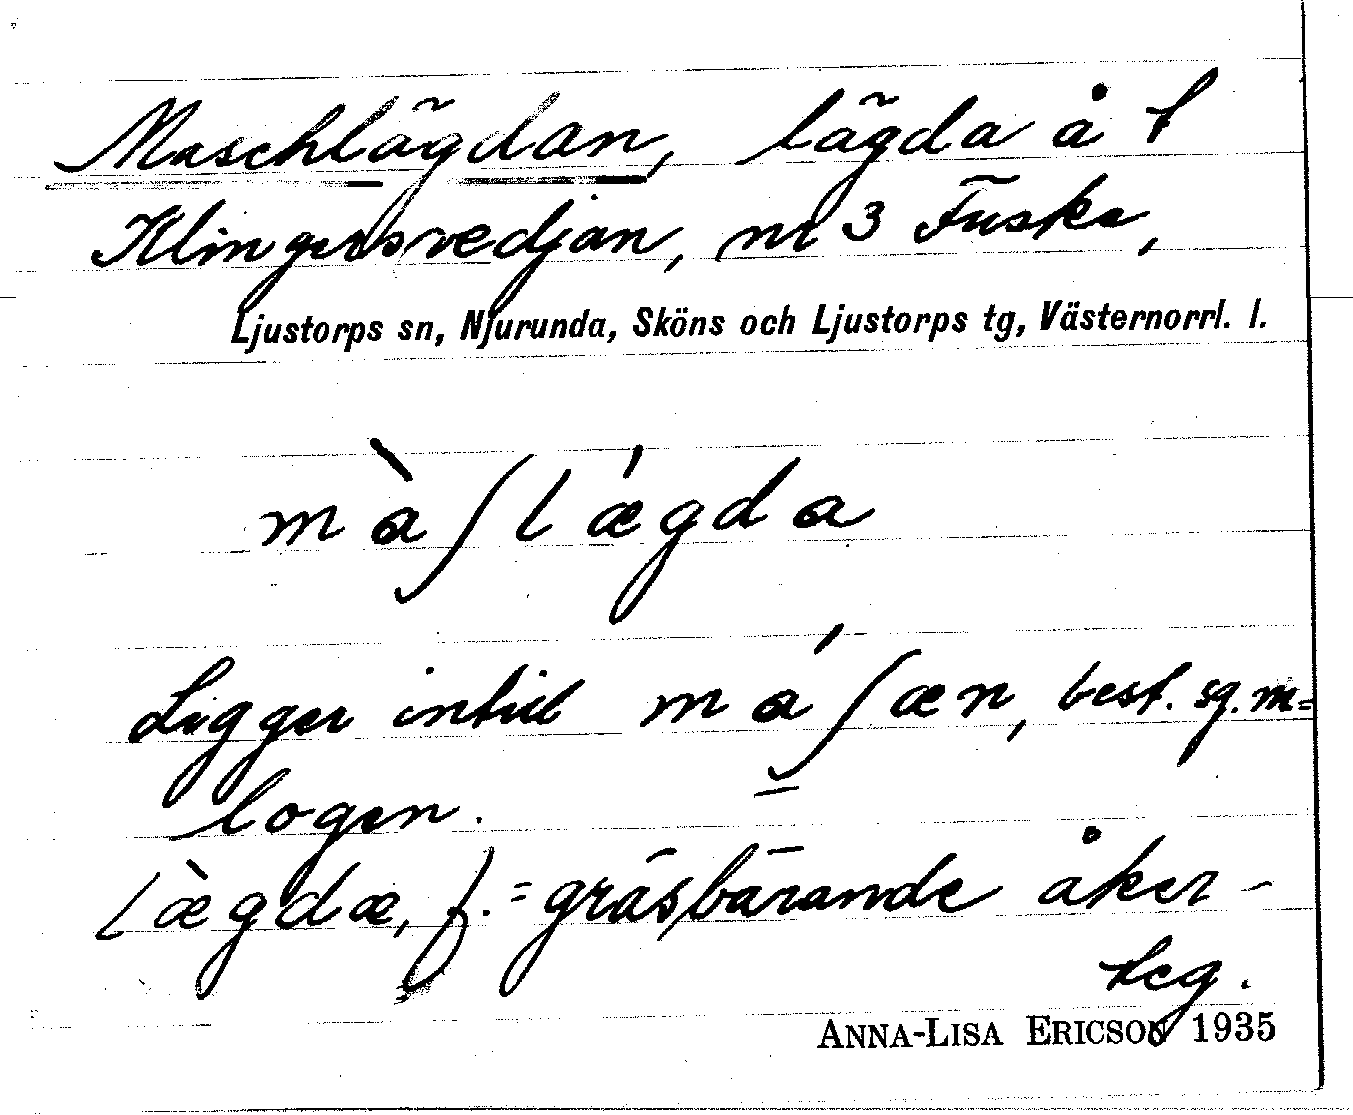 Maschlägdan, lägda å t
Klingersvedjan, nr 3 Fuske,
Ljustorps sn, Njurunda, Sköns och Ljustorps tg, Västernorrl. l.
màʃlǽgda
Ligger intill máʃæn, best. sg. m=
logen.
lægdæ, f. = gräsbärande åker-
teg.
ANNA-LISA ERICSON 1935